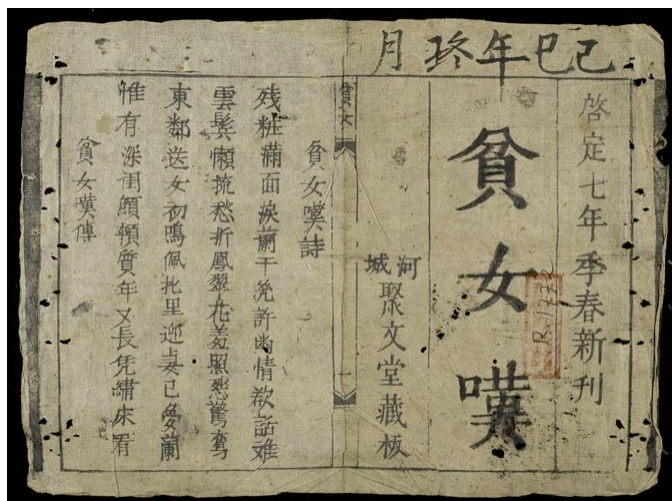 己巳年月
啓定七年季春新刊
貧女嘆
河城
聚文堂藏板
貧女
貧女嘆詩
残粧滿面淚蘭干幾許幽情欲話难
雲髩懶梳愁折鳳翠花羞照恐驚鸞
東鄰送女初鳴佩北里迎妻已夢蘭
惟有深闺顦顇質年又長凭繡床看
貧女嘆傳